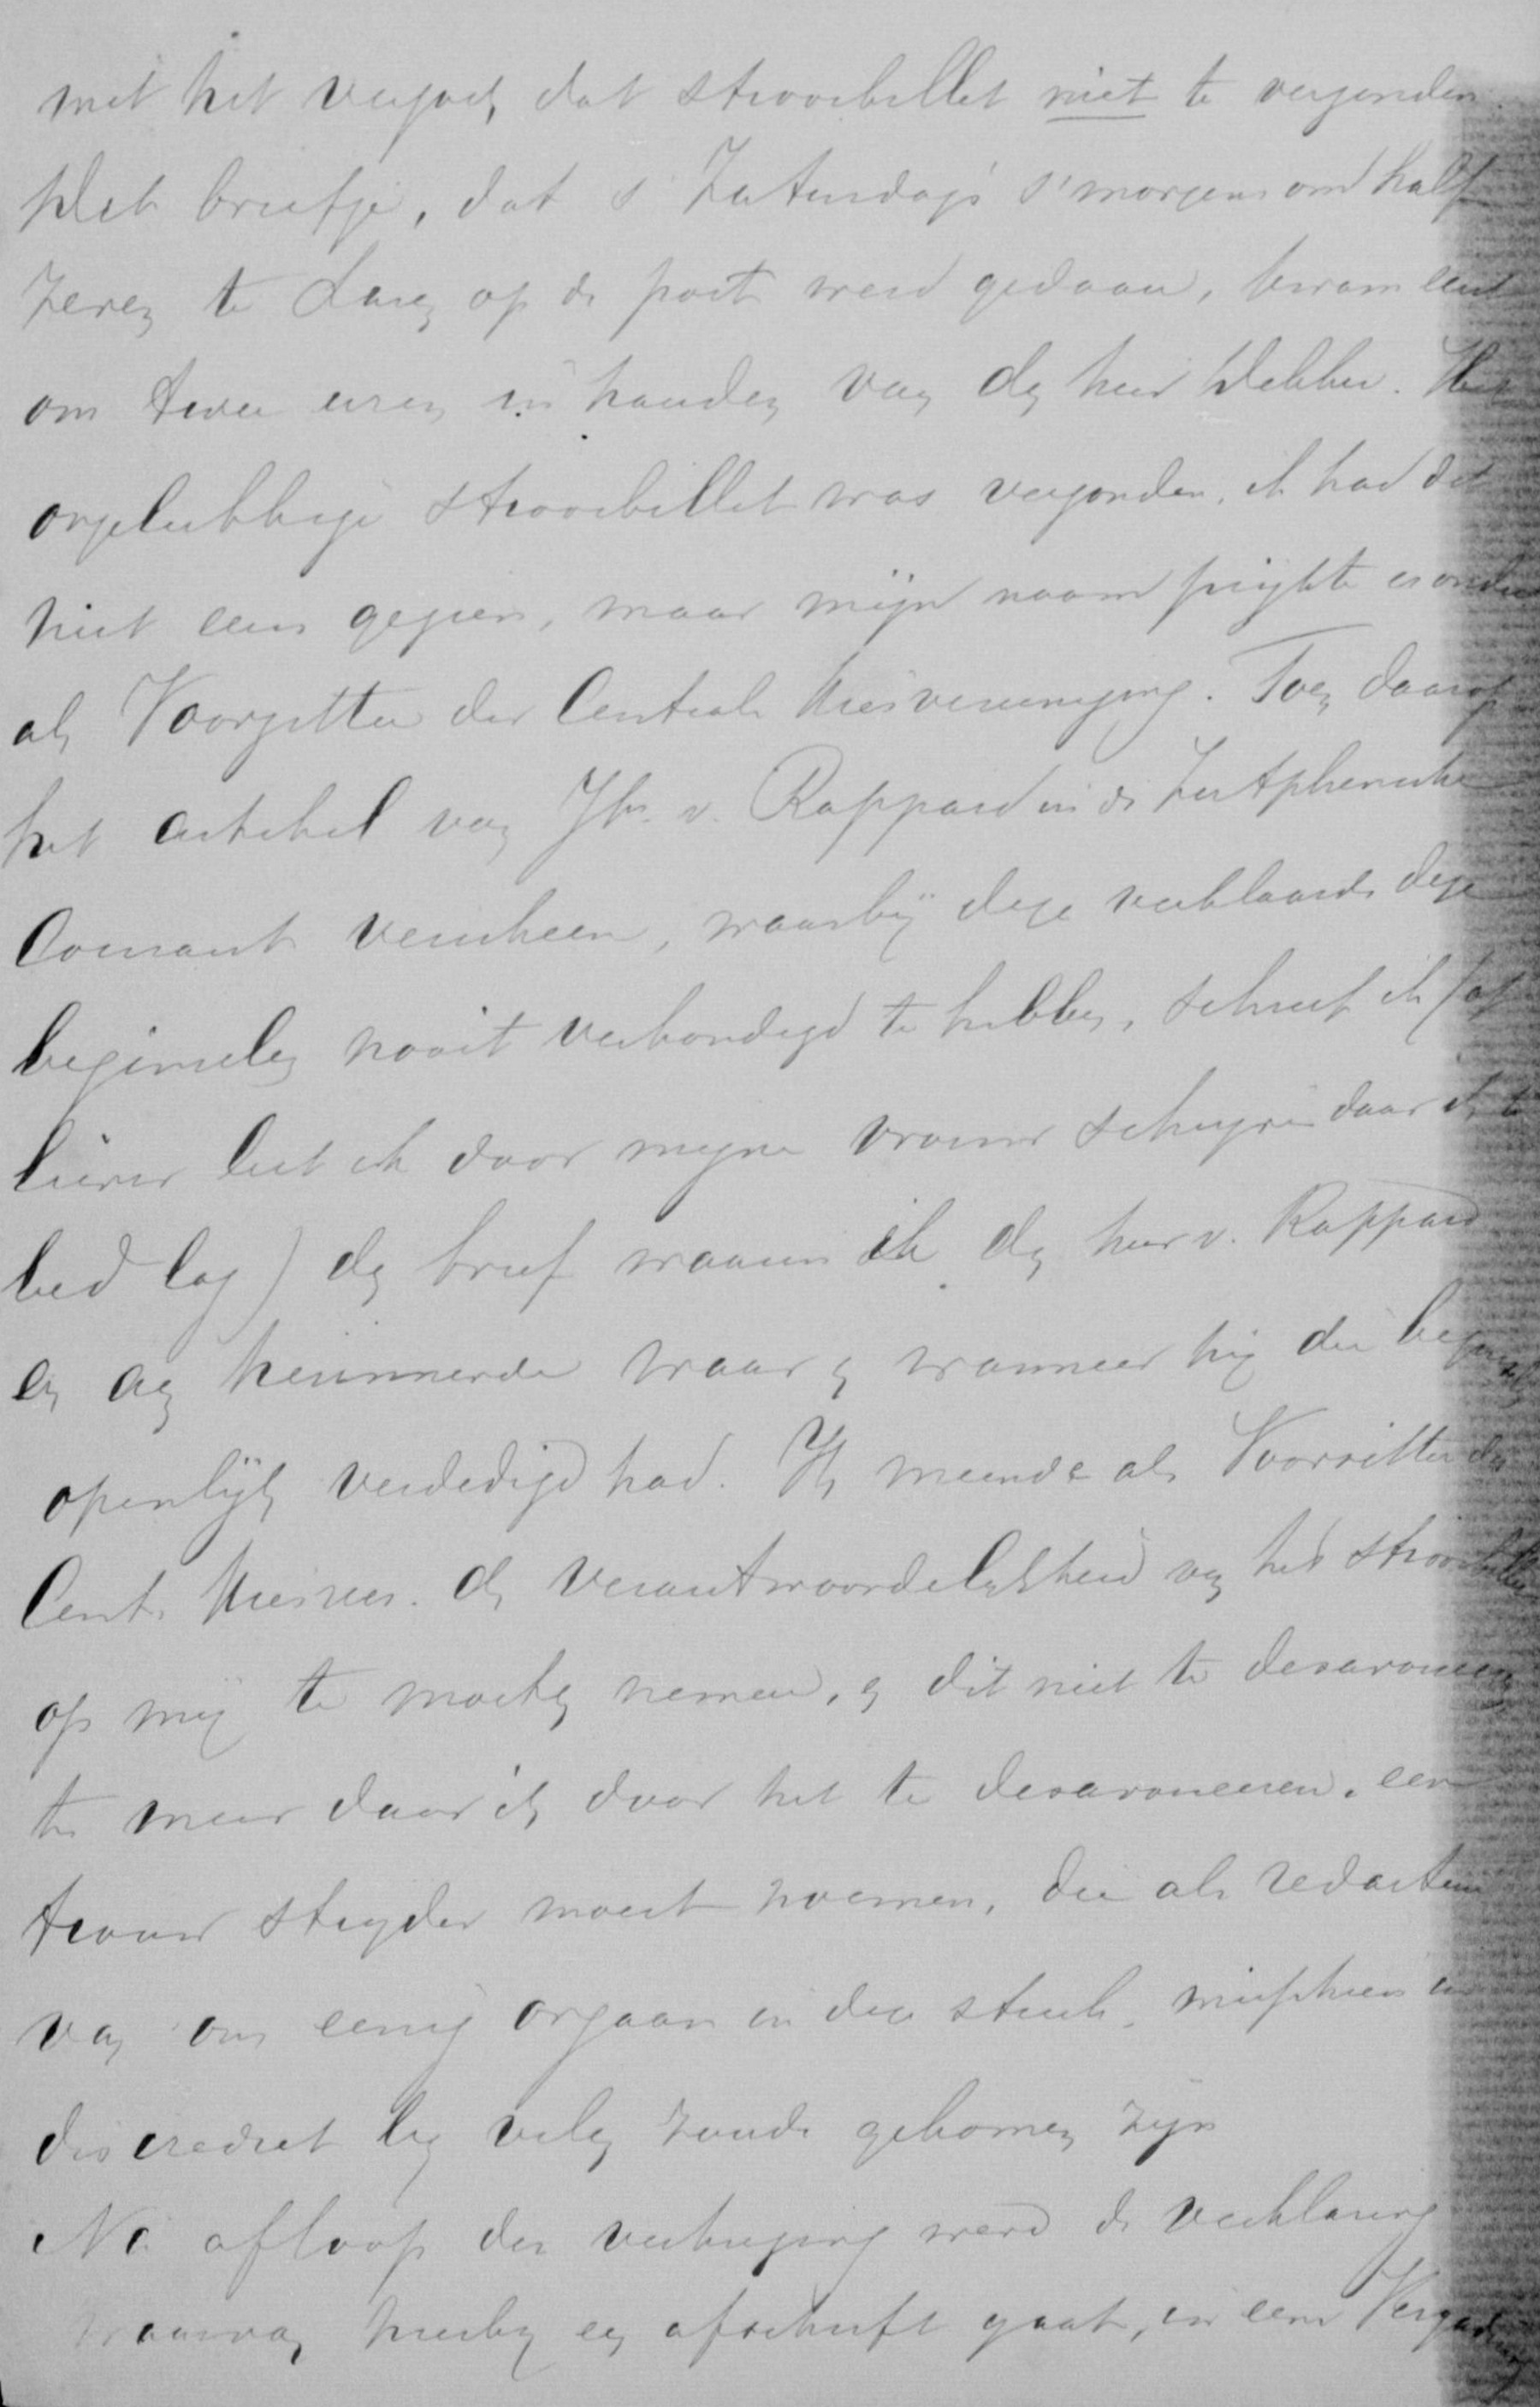 met het verzoek, dat strooibillet niet te verzenden.
Dat briefje, dat 's Zaturdags s'morgens om half
Zeven te Laag op de post werd gedaan, kwam eerst
om twee uren in handen van den heer Dekker. Het
ongelukkige strooibillet was verzonden, ik had dat
niet eens gezien, maar mijn naam prijkte er onder
als Voorzitter der Centrale Kiesvereeniging. Toen daarop
het artikel van Jhr. v. Rappard in de Zutphensche
Courant verscheen, waarbij deze verklaarde deze
beginselen nooit verkondigd te hebben, schreef ik (of
liever liet ik door mijne vrouw schrijven daar ik te
bed lag) den brief waarin ik den heer v. Rappard
er aan herinnerde waar en wanneer hij die beginselen
openlijk verdedigd had. Ik meende als Voorzitter der
Cent. Kiesver. de verantwoordelijkheid van het strooibillet
op mij te moeten nemen, en dit niet te desavoueeren
te meer daar ik door het te desavoueeren, een
trouw strijder moest noemen, die als redacteur
van ons eenig orgaan in deze streek, misschien in
discrediet bij velen zoude gekomen zijn
Na afloop der verkiezing werd de verklaring
waarvan hierbij een afschrift gaat, in eene Vergadering